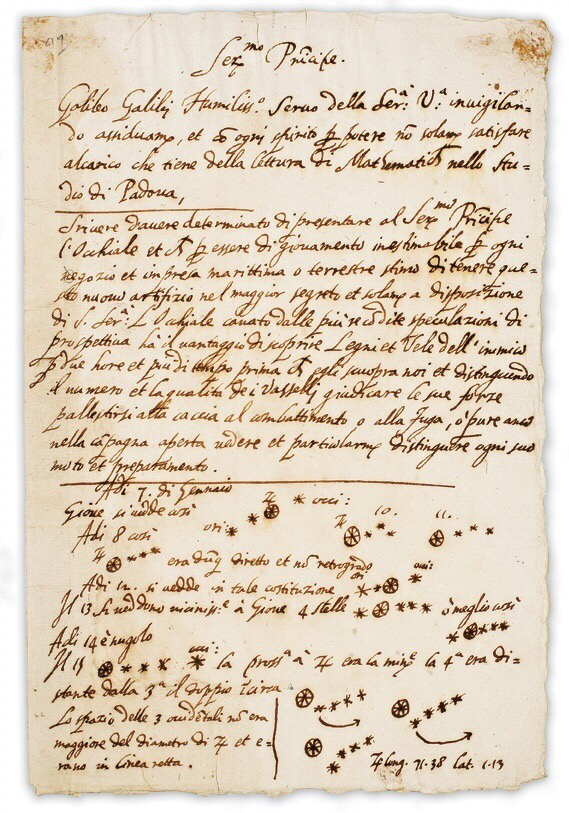 99
Ser.mo Principe.
Galileo Galilej Humiliss.o Servo della Ser.a V.a invigilan=
do assiduam.e, et cō ogni spirito p potere nō solam.e satisfare
al carico che tiene della lettura di Mathematich nello Stu=
dio di Padova,
Scrivere d'avere determinato di presentare al Ser.mo Principe
l'Occhiale et ch p essere di giovamento inestimabile p ogni
negozio et impresa marittima o terrestre stimo di tenere que=
sto nuovo artifizio nel maggior segreto et solam.e a disposizione
di S. Ser.a L'Occhiale cavato dalle più recōdite speculazioni di
prospettiva ha il vantaggio di scoprire Legni et Vele dell'inimico
p due hore et più di tempo prima ch egli scuopra noi et distinguendo
il numero et la qualità dei Vasselli giudicare le sue forze
pallestirsi alla caccia al combattimento o alla fuga, o pure anco
nella cāpagna aperta vedere et particolarm.e distinguere ogni suo
moto et preparamento.
Adi 7. di Gennaio
Gioue si uedde così ♃ occi:
Adi 8 così ori: ♃ 10. 11.
♃ era dūq diretto et nō retrogrado
Adi 12. si uedde in tale costituzione ori: occi:
Il 13 si ueddono uiciniss.e à Gioue 4 stelle ò meglio così
Adi 14 è nugolo
Il 15 occi: la pross.a à ♃ era la min.e la 4.a era di=
stante dalla 3.a il doppio īcirca
Lo spazio delle 3 occidētali nō era
maggiore del diametro di ♃ et e=
rano in linea retta.
♃ long. 71.38 lat. 1.13